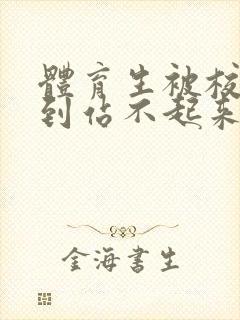 體育生被校
到佔不起來
金海書生